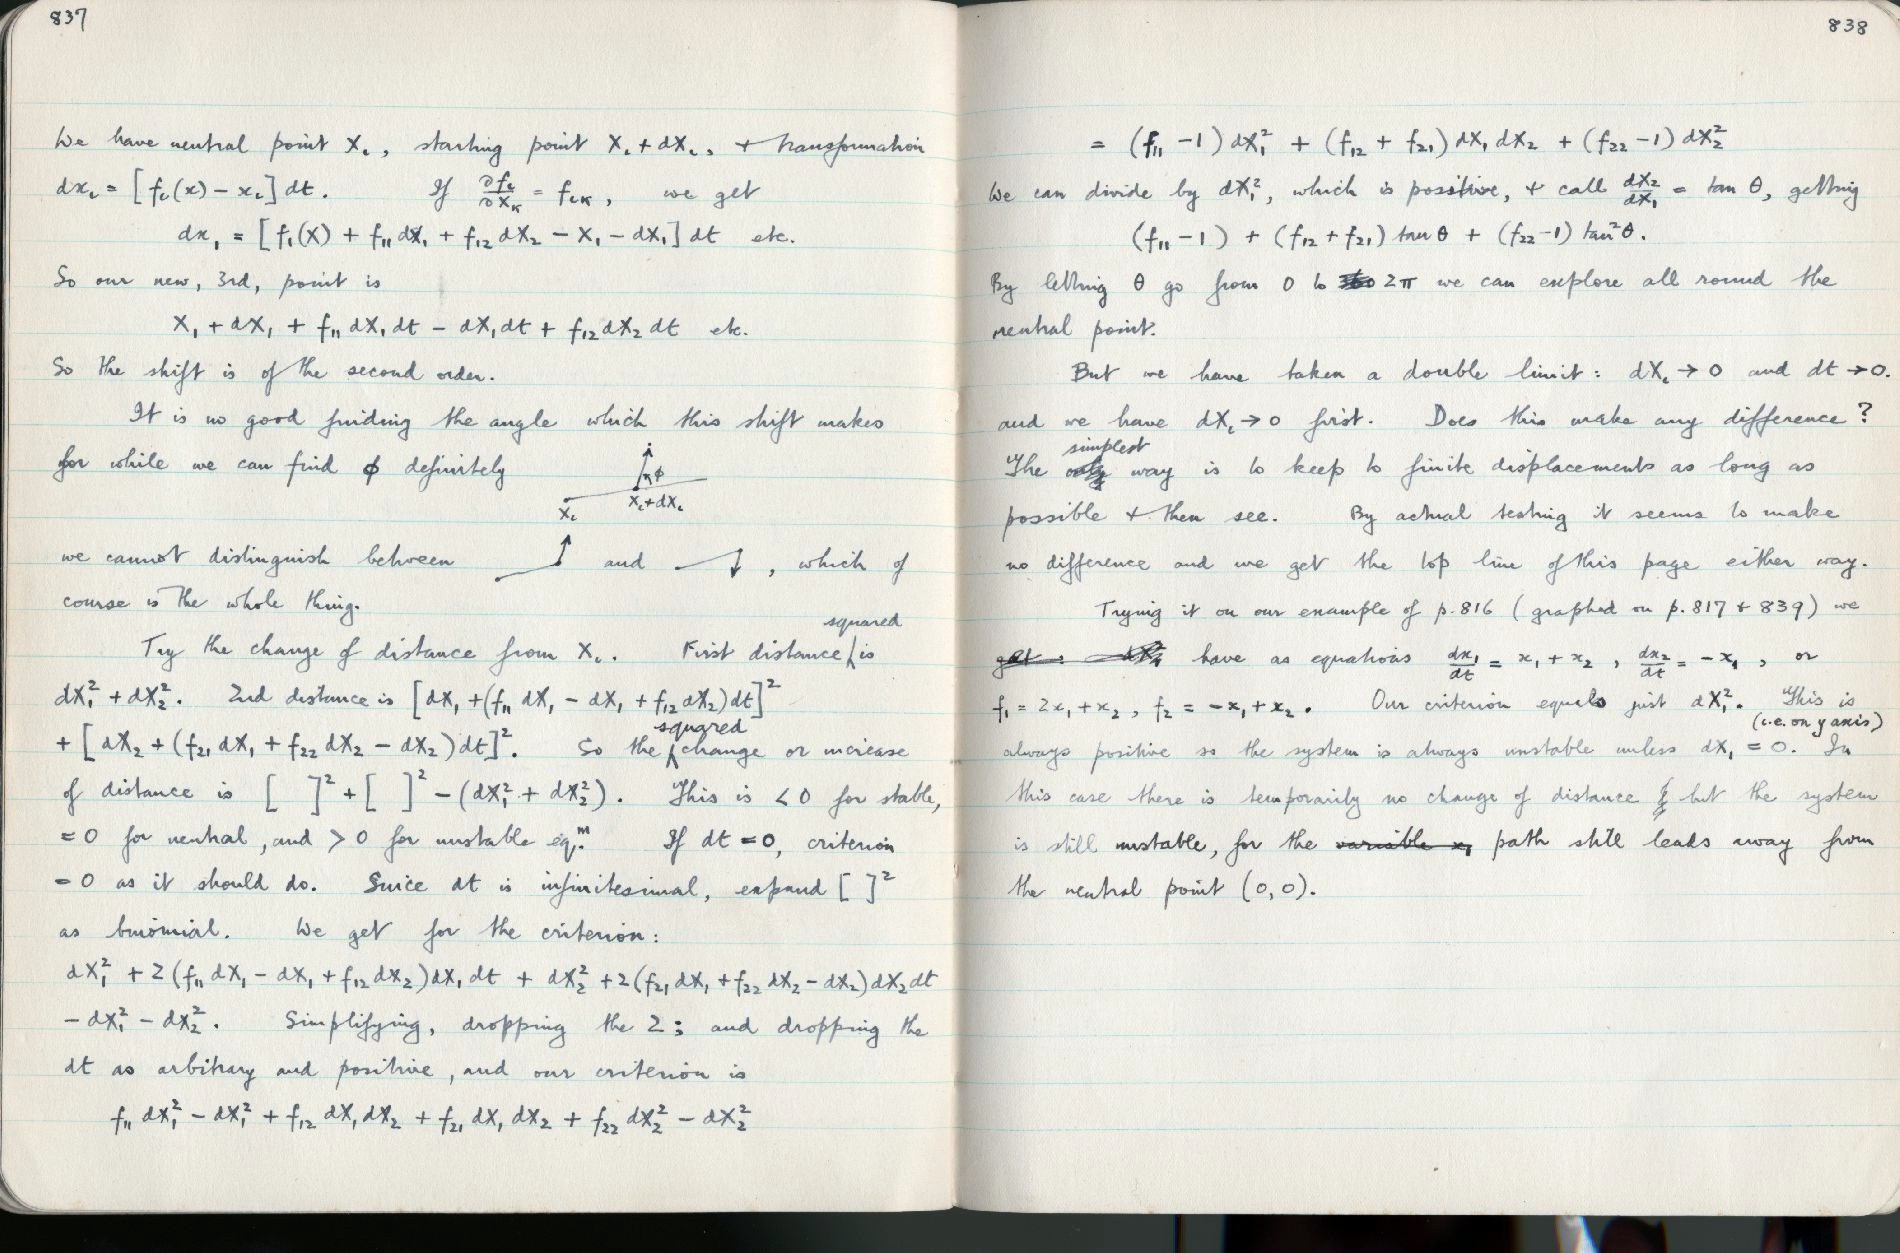 837
We have neutral point Xᵢ, starting point Xᵢ + dXᵢ, + transformation
dxᵢ = [fᵢ(x) − xᵢ] dt. If ∂fᵢ/∂Xₖ = fᵢₖ, we get
dx₁ = [f₁(X) + f₁₁ dX₁ + f₁₂ dX₂ − X₁ − dX₁] dt etc.
So our new, 3rd, point is
X₁ + dX₁ + f₁₁ dX₁ dt − dX₁ dt + f₁₂ dX₂ dt etc.
So the shift is of the second order.
It is no good finding the angle which this shift makes
for while we can find φ definitely
φ
Xᵢ Xᵢ+dXᵢ
we cannot distinguish between and , which of
course is the whole thing.
Try the change of distance from Xᵢ. First distance squared is
dX₁² + dX₂². 2nd distance is [dX₁ + (f₁₁ dX₁ − dX₁ + f₁₂ dX₂) dt]²
+ [dX₂ + (f₂₁ dX₁ + f₂₂ dX₂ − dX₂) dt]². So the squared change or increase
of distance is [ ]² + [ ]² − (dX₁² + dX₂²). This is < 0 for stable,
= 0 for neutral, and > 0 for unstable eq.ᵐ If dt = 0, criterion
= 0 as it should do. Since dt is infinitesimal, expand [ ]²
as binomial. We get for the criterion:
dX₁² + 2(f₁₁ dX₁ − dX₁ + f₁₂ dX₂) dX₁ dt + dX₂² + 2(f₂₁ dX₁ + f₂₂ dX₂ − dX₂) dX₂ dt
− dX₁² − dX₂². Simplifying, dropping the 2; and dropping the
dt as arbitrary and positive, and our criterion is
f₁₁ dX₁² − dX₁² + f₁₂ dX₁ dX₂ + f₂₁ dX₁ dX₂ + f₂₂ dX₂² − dX₂²
838
= (f₁₁ − 1) dX₁² + (f₁₂ + f₂₁) dX₁ dX₂ + (f₂₂ − 1) dX₂²
We can divide by dX₁², which is positive, + call dX₂/dX₁ = tan θ, getting
(f₁₁ − 1) + (f₁₂ + f₂₁) tan θ + (f₂₂ − 1) tan²θ.
By letting θ go from 0 to 2π we can explore all round the
neutral point.
But we have taken a double limit: dXᵢ → 0 and dt → 0.
and we have dXᵢ → 0 first. Does this make any difference?
The simplest way is to keep to finite displacements as long as
possible + then see. By actual testing it seems to make
no difference and we get the top line of this page either way.
Trying it on our example of p. 816 (graphed on p. 817 + 839) we
get: have as equations dx₁/dt = x₁ + x₂, dx₂/dt = −x₁, or
f₁ = 2x₁ + x₂, f₂ = −x₁ + x₂. Our criterion equals just dX₁². This is
always positive so the system is always unstable unless dX₁ = 0. (i.e. on y axis) In
this case there is temporarily no change of distance but the system
is still unstable, for the variable x₁ path still leads away from
the neutral point (0,0).